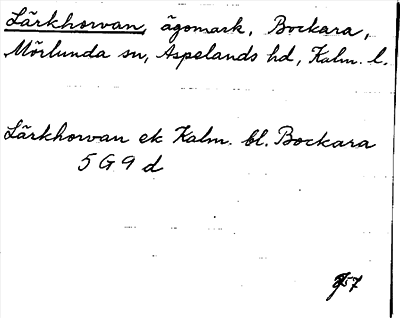 Lärkhorvan, ägomark, Bockara,
Mörlunda sn, Aspelands hd, Kalm. l.
Lärkhorvan ek Kalm. bl. Bockara
5 G 9 d
57